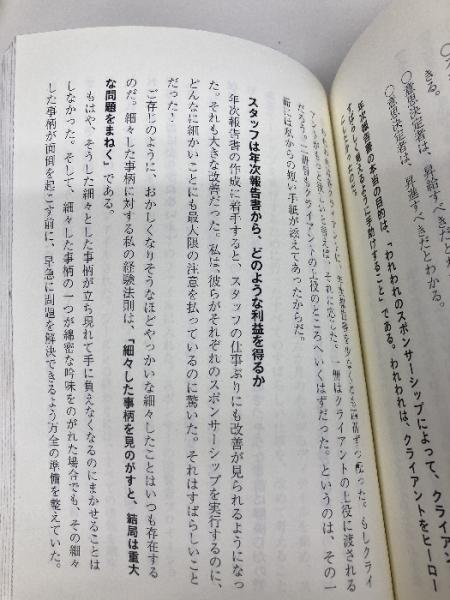 きる。
〇意思決定者は、昇給すべきだとわかる。
〇意思決定者は、昇進すべきだとわかる。
年次報告書の本当の目的は、「われわれのスポンサーシップによって、クライアン
すばらしく見えるように手助けすること」である。われわれは、クライアントをヒーロー
った。もしクライ
アントが
クライアントの上役に渡される
だろう。二冊目もクライアントの上役のところへいくはずだった。というのは、その一
冊には私からの短い手紙が添えてあったからだ。
スタッフは年次報告書から、どのような利益を得るか
年次報告書の作成に着手すると、スタッフの仕事ぶりにも改善が見られるようになっ
た。それも大きな改善だった。私は、彼らがそれぞれのスポンサーシップを実行するのに、
どんなに細かいことにも最大限の注意を払っているのに驚いた。それはすばらしいこと
だった！
ご存じのように、おかしくなりそうなほどやっかいな細々したことはいつも存在する
のだ。細々した事柄に対する私の経験法則は、「細々した事柄を見のがすと、結局は重大
な問題をまねく」である。
もはや、そうした細々とした事柄が立ち現れて手に負えなくなるのにまかせることは
しなかった。そして、細々した事柄の一つが綿密な吟味をのがれた場合でも、その細々
した事柄が面倒を起こす前に、早急に問題を解決できるよう万全の準備を整えていた。